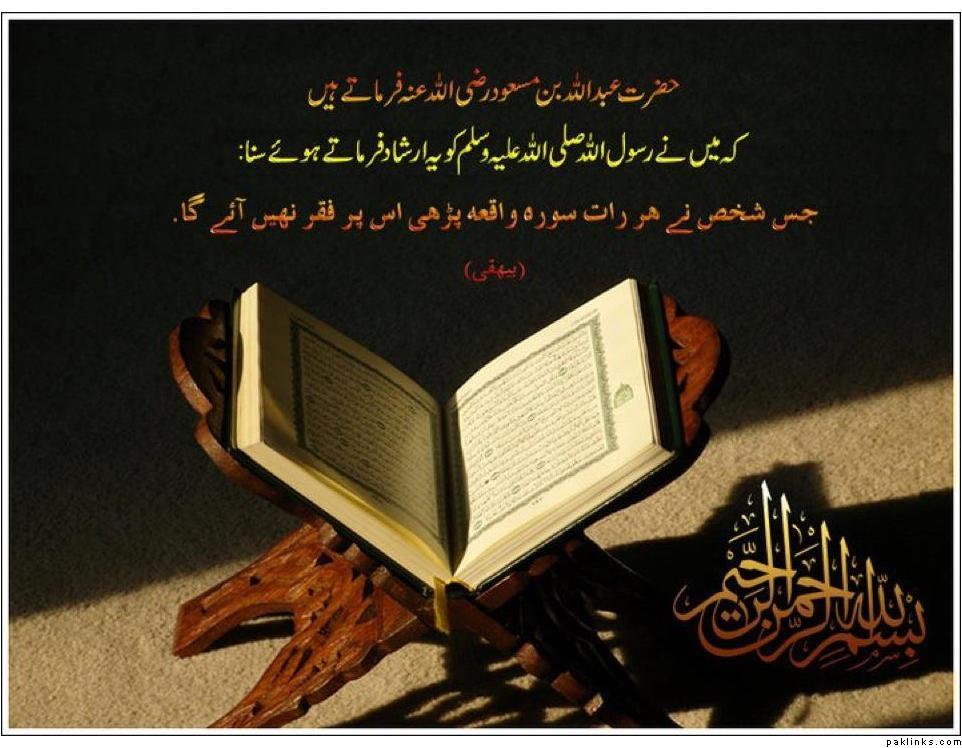 حضرت عبداللہ بن مسعود رضی اللہ عنہ فرماتے ہیں
کہ میں نے رسول اللہ صلی اللہ علیہ وسلم کو یہ ارشاد فرماتے ہوئے سنا:
جس شخص نے هر رات سوره واقعه پڑهی اس پر فقر نهیں آئے گا.
(بیهقی)
بِسْمِ اللهِ الرَّحْمٰنِ الرَّحِيْمِ
paklinks.com